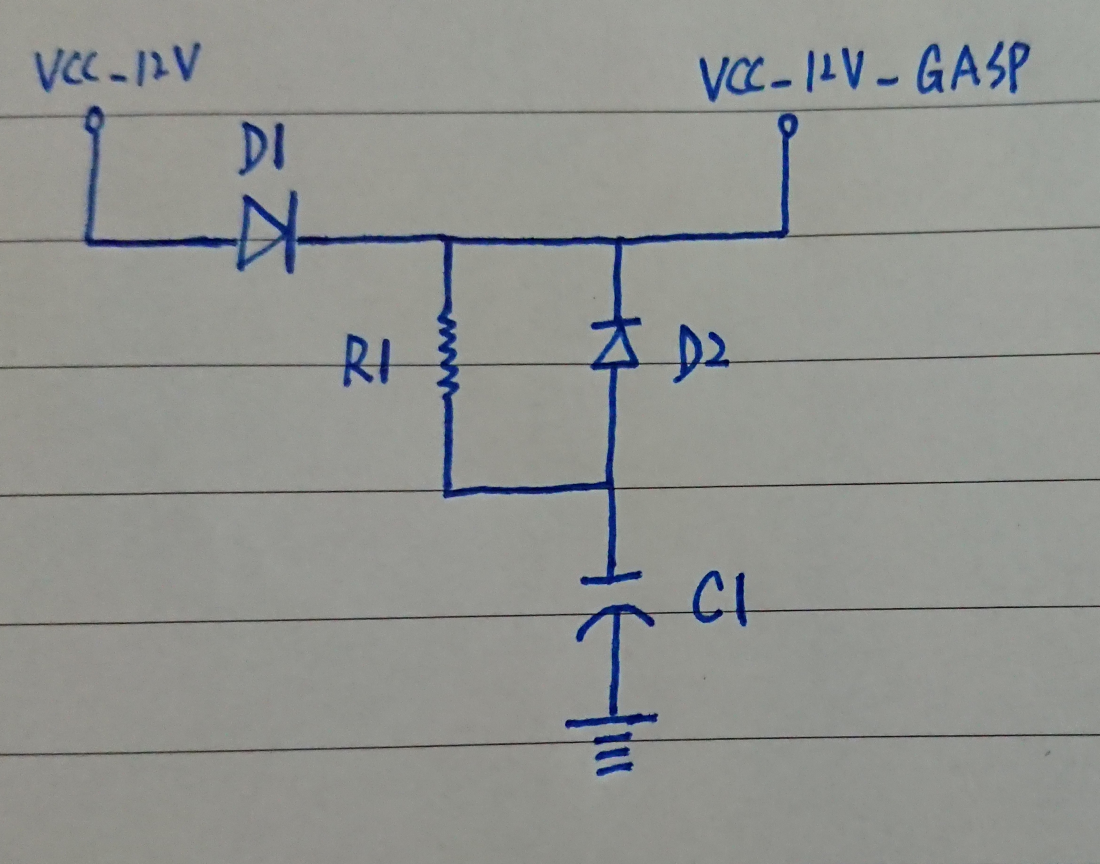 VCC-12V
VCC-12V-GASP
D1
R1
D2
C1